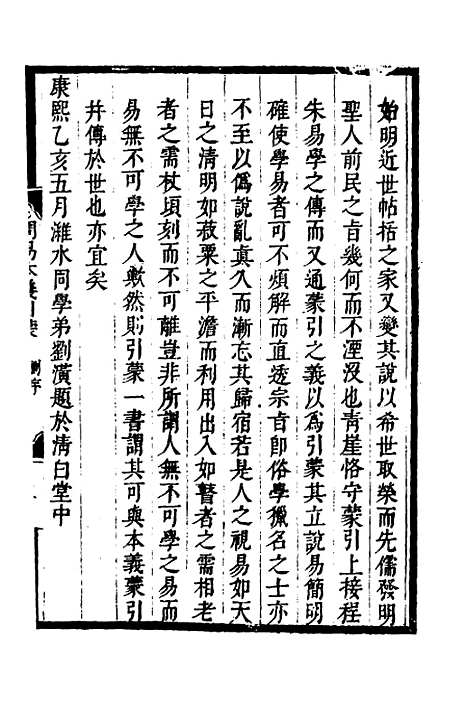 始明近世帖括之家又變其說以希世取榮而先儒發明
聖人前民之旨幾何而不湮沒也青崖恪守蒙引上接程
朱易學之傳而又通蒙引之義以爲引蒙其立說易簡明
確使學易者可不煩解而直透宗旨卽俗學獵名之士亦
不至以僞說亂眞久而漸忘其歸宿若是人之視易如天
日之清明如菽粟之平澹而利用出入如瞽者之需相老
者之需杖頃刻而不可離豈非所謂人無不可學之易而
易無不可學之人歟然則引蒙一書謂其可與本義蒙引
并傳於世也亦宜矣
康熙乙亥五月濰水同學弟劉漢題於清白堂中
周易本義引蒙
劉序